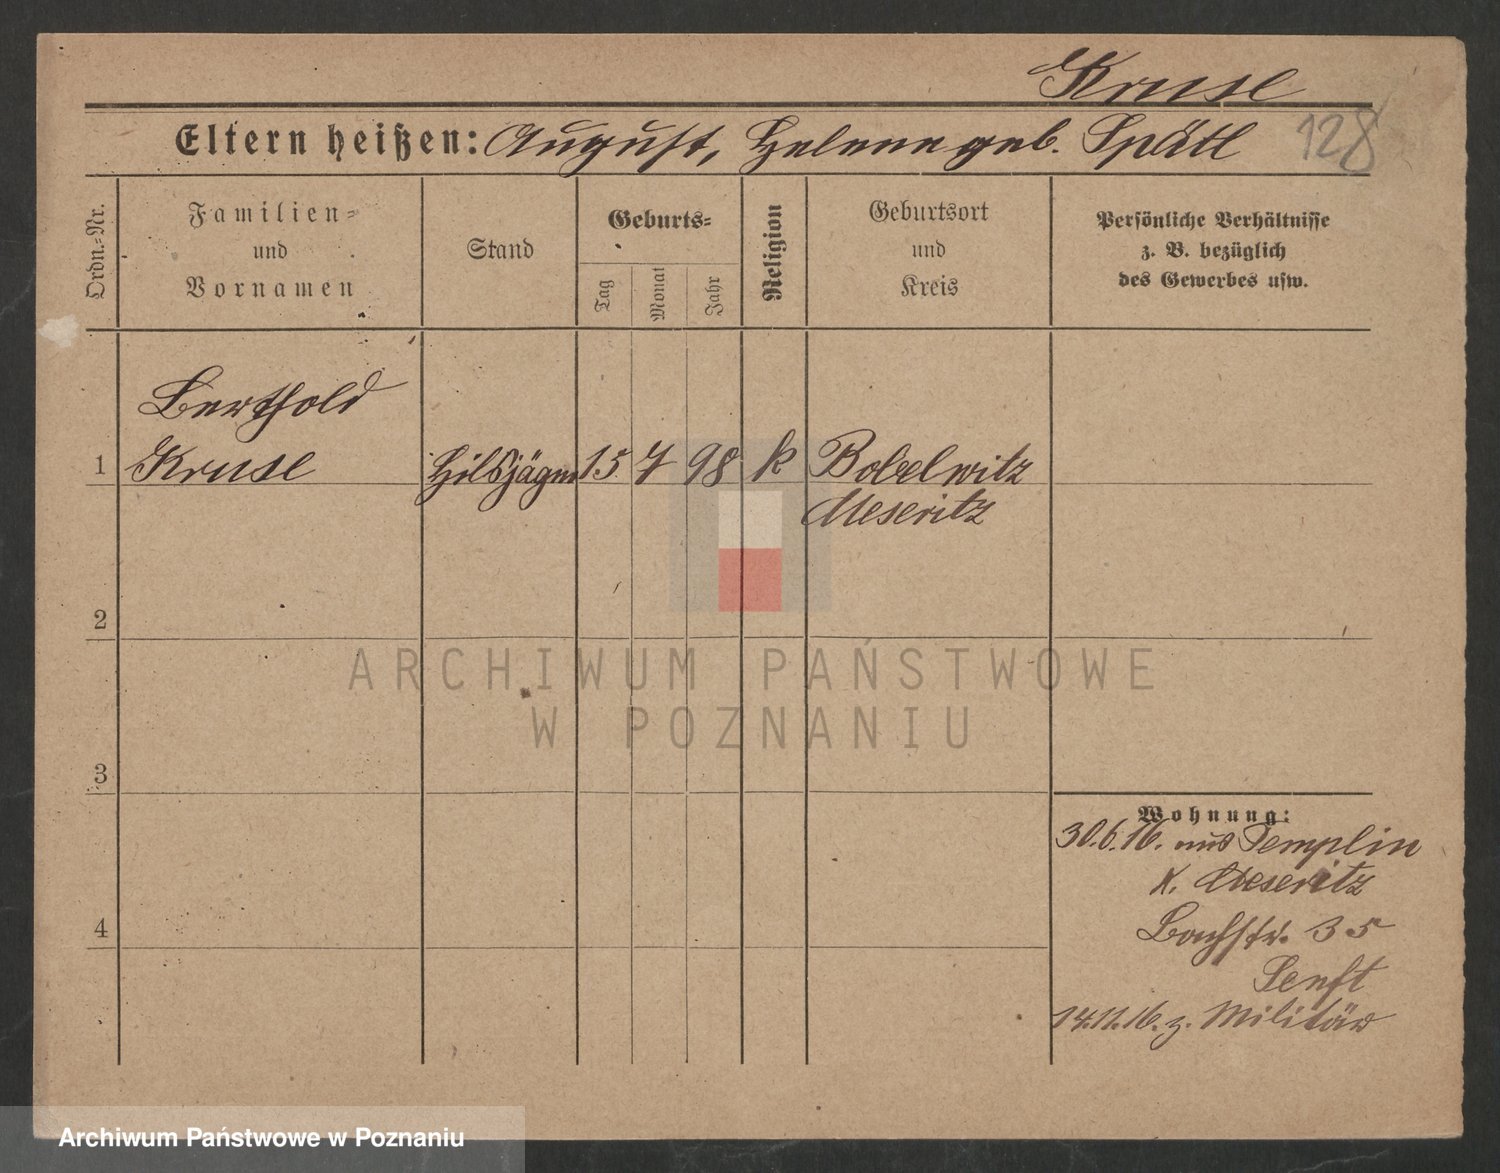 Kruse
Eltern heißen: August, Helene geb. Spätl
128
Ordn.-Nr.
Familien-
und
Vornamen
Stand
Geburts-
Tag
Monat
Jahr
Religion
Geburtsort
und
Kreis
Persönliche Verhältnisse
z. B. bezüglich
des Gewerbes usw.
Berthold
1 Kruse Hilfsjäger 15 7 98 k Bobelwitz
Meseritz
2
3
4
Wohnung:
30.6.16. aus Templin
K. Meseritz
Bachstr. 35
Senft
14.11.16. z. Militär
ARCHIWUM PAŃSTWOWE
W POZNANIU
Archiwum Państwowe w Poznaniu